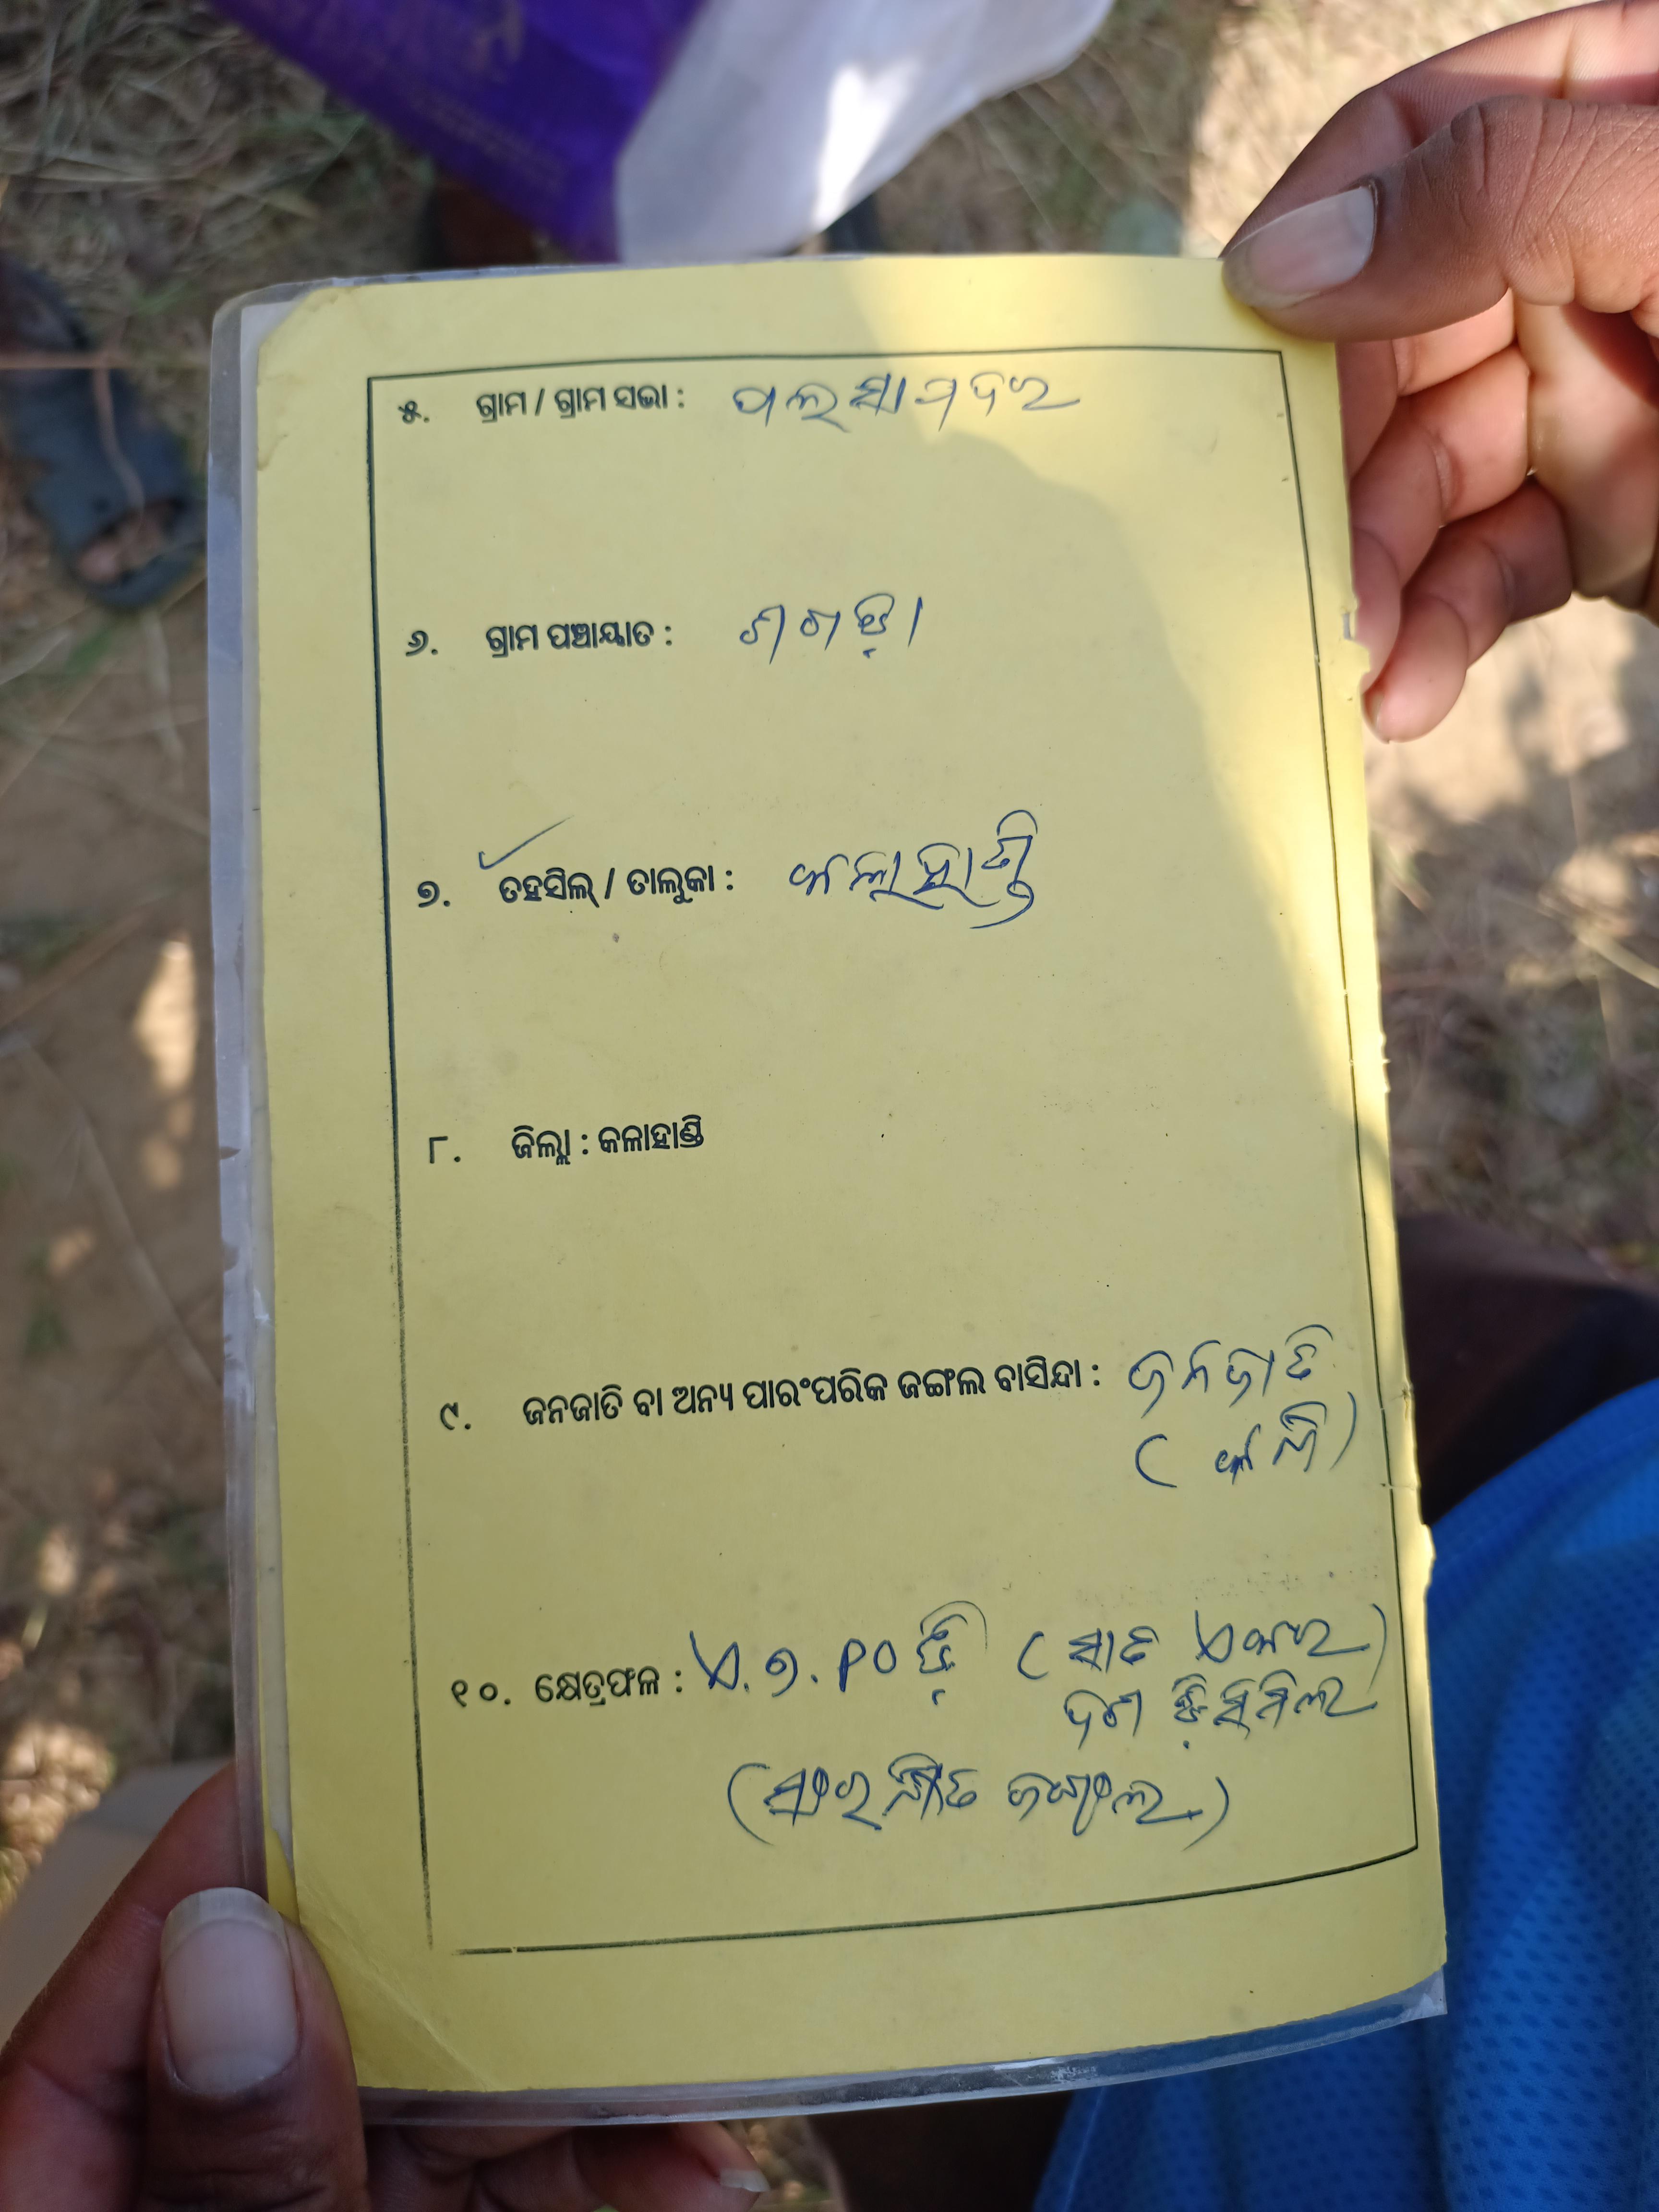 ୫. ଗ୍ରାମ / ଗ୍ରାମ ସଭା : ପଲସାପଦର
୬. ଗ୍ରାମ ପଞ୍ଚାୟାତ :
୭. ତହସିଲ୍ / ତାଲୁକା : କଳାହାଣ୍ଡି
୮. ଜିଲ୍ଲା : କଳାହାଣ୍ଡି
୯. ଜନଜାତି ବା ଅନ୍ୟ ପାରଂପରିକ ଜଙ୍ଗଲ ବାସିନ୍ଦା : ଜନଜାତି
୧୦. କ୍ଷେତ୍ରଫଳ : ଏ.୭.୧୦ ଡ଼ି (ସାତ ଏକର)
ଦଶ ଡ଼ିସିମିଲ
(ସଂରକ୍ଷୀତ ଜଙ୍ଗଲ)